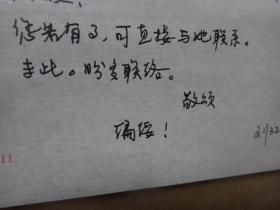 您若有了，可直接与她联系。
专此。盼多联络。
敬颂
编绥！
11